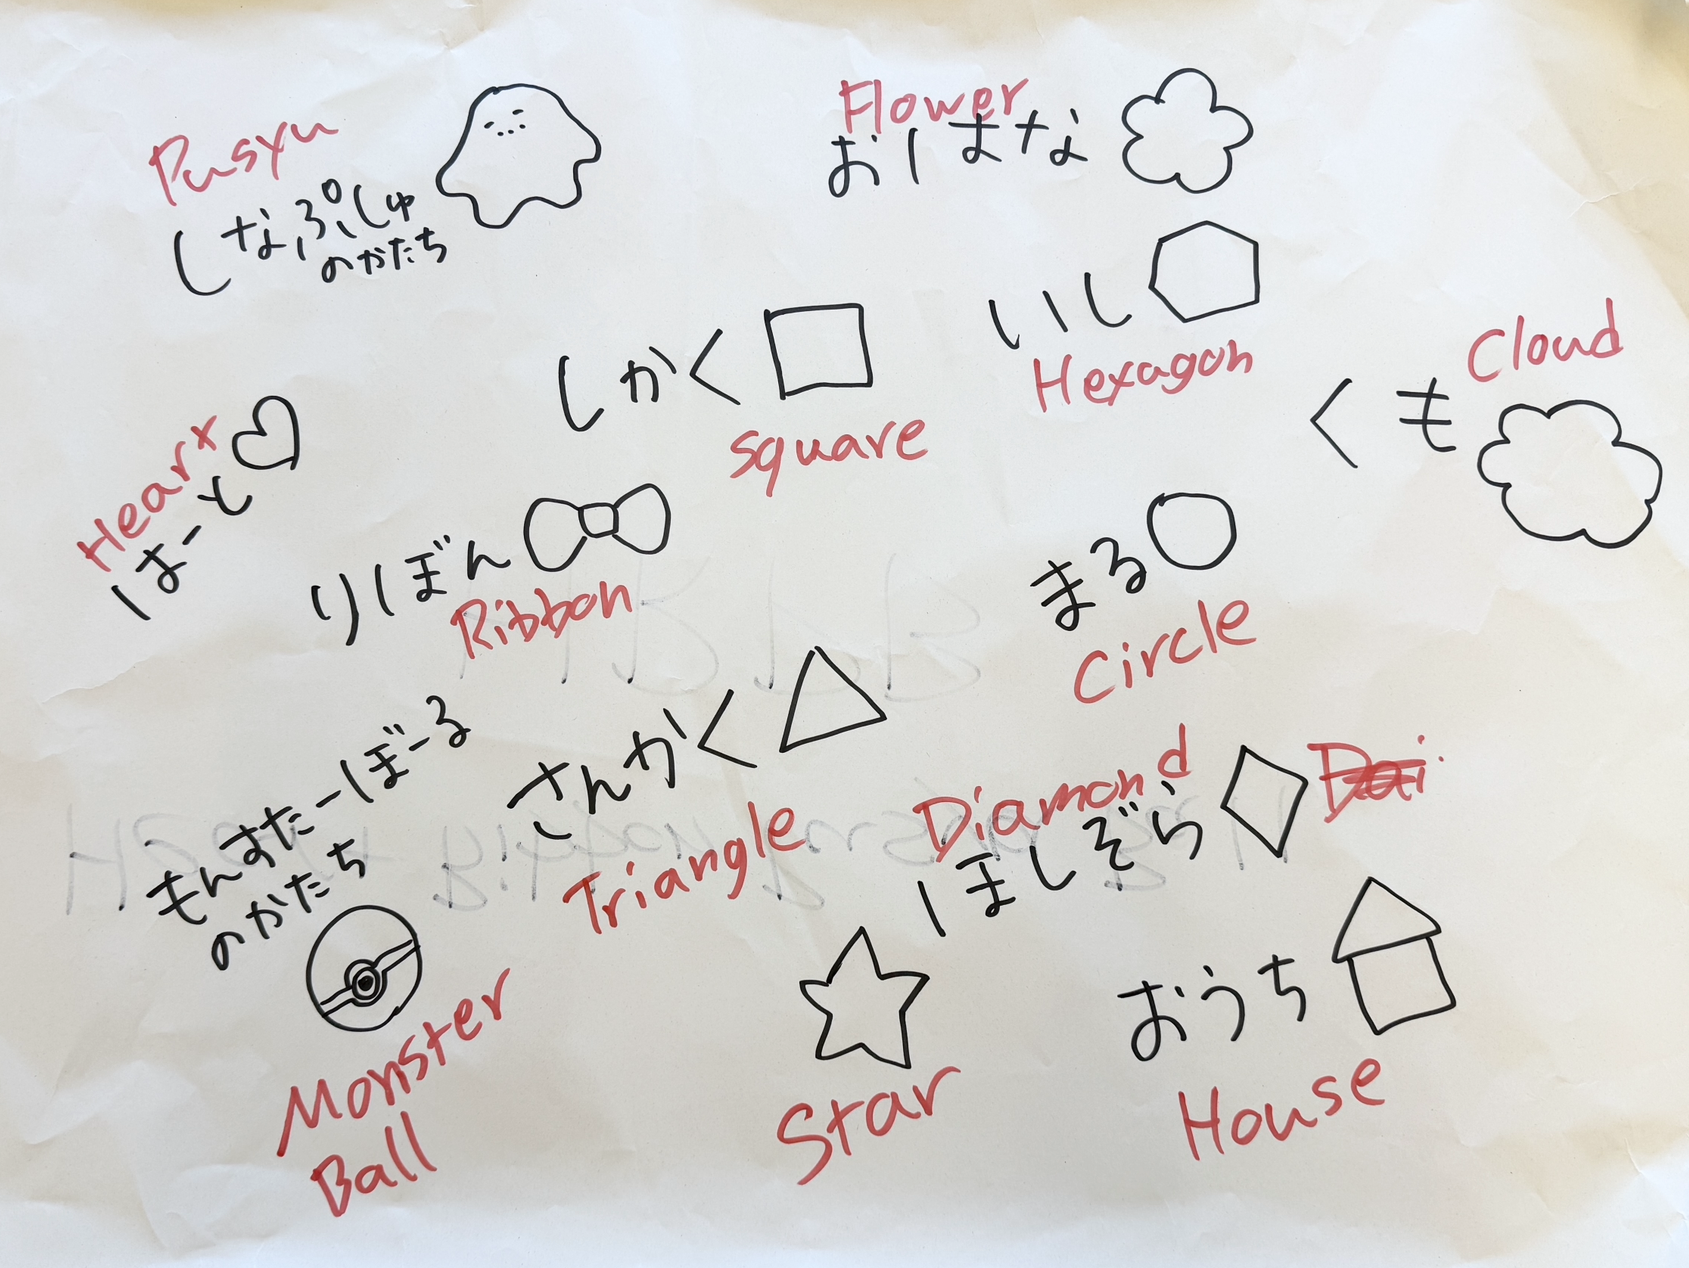 Pusyu
しなぷしゅ
のかたち
Flower
おはな
いし
Hexagon
しかく
square
Cloud
くも
Heart
はーと
りぼん
Ribbon
まる
Circle
さんかく
Triangle
もんすたーぼーる
のかたち
Monster
Ball
Diamond
ほしぞら
Star
おうち
House